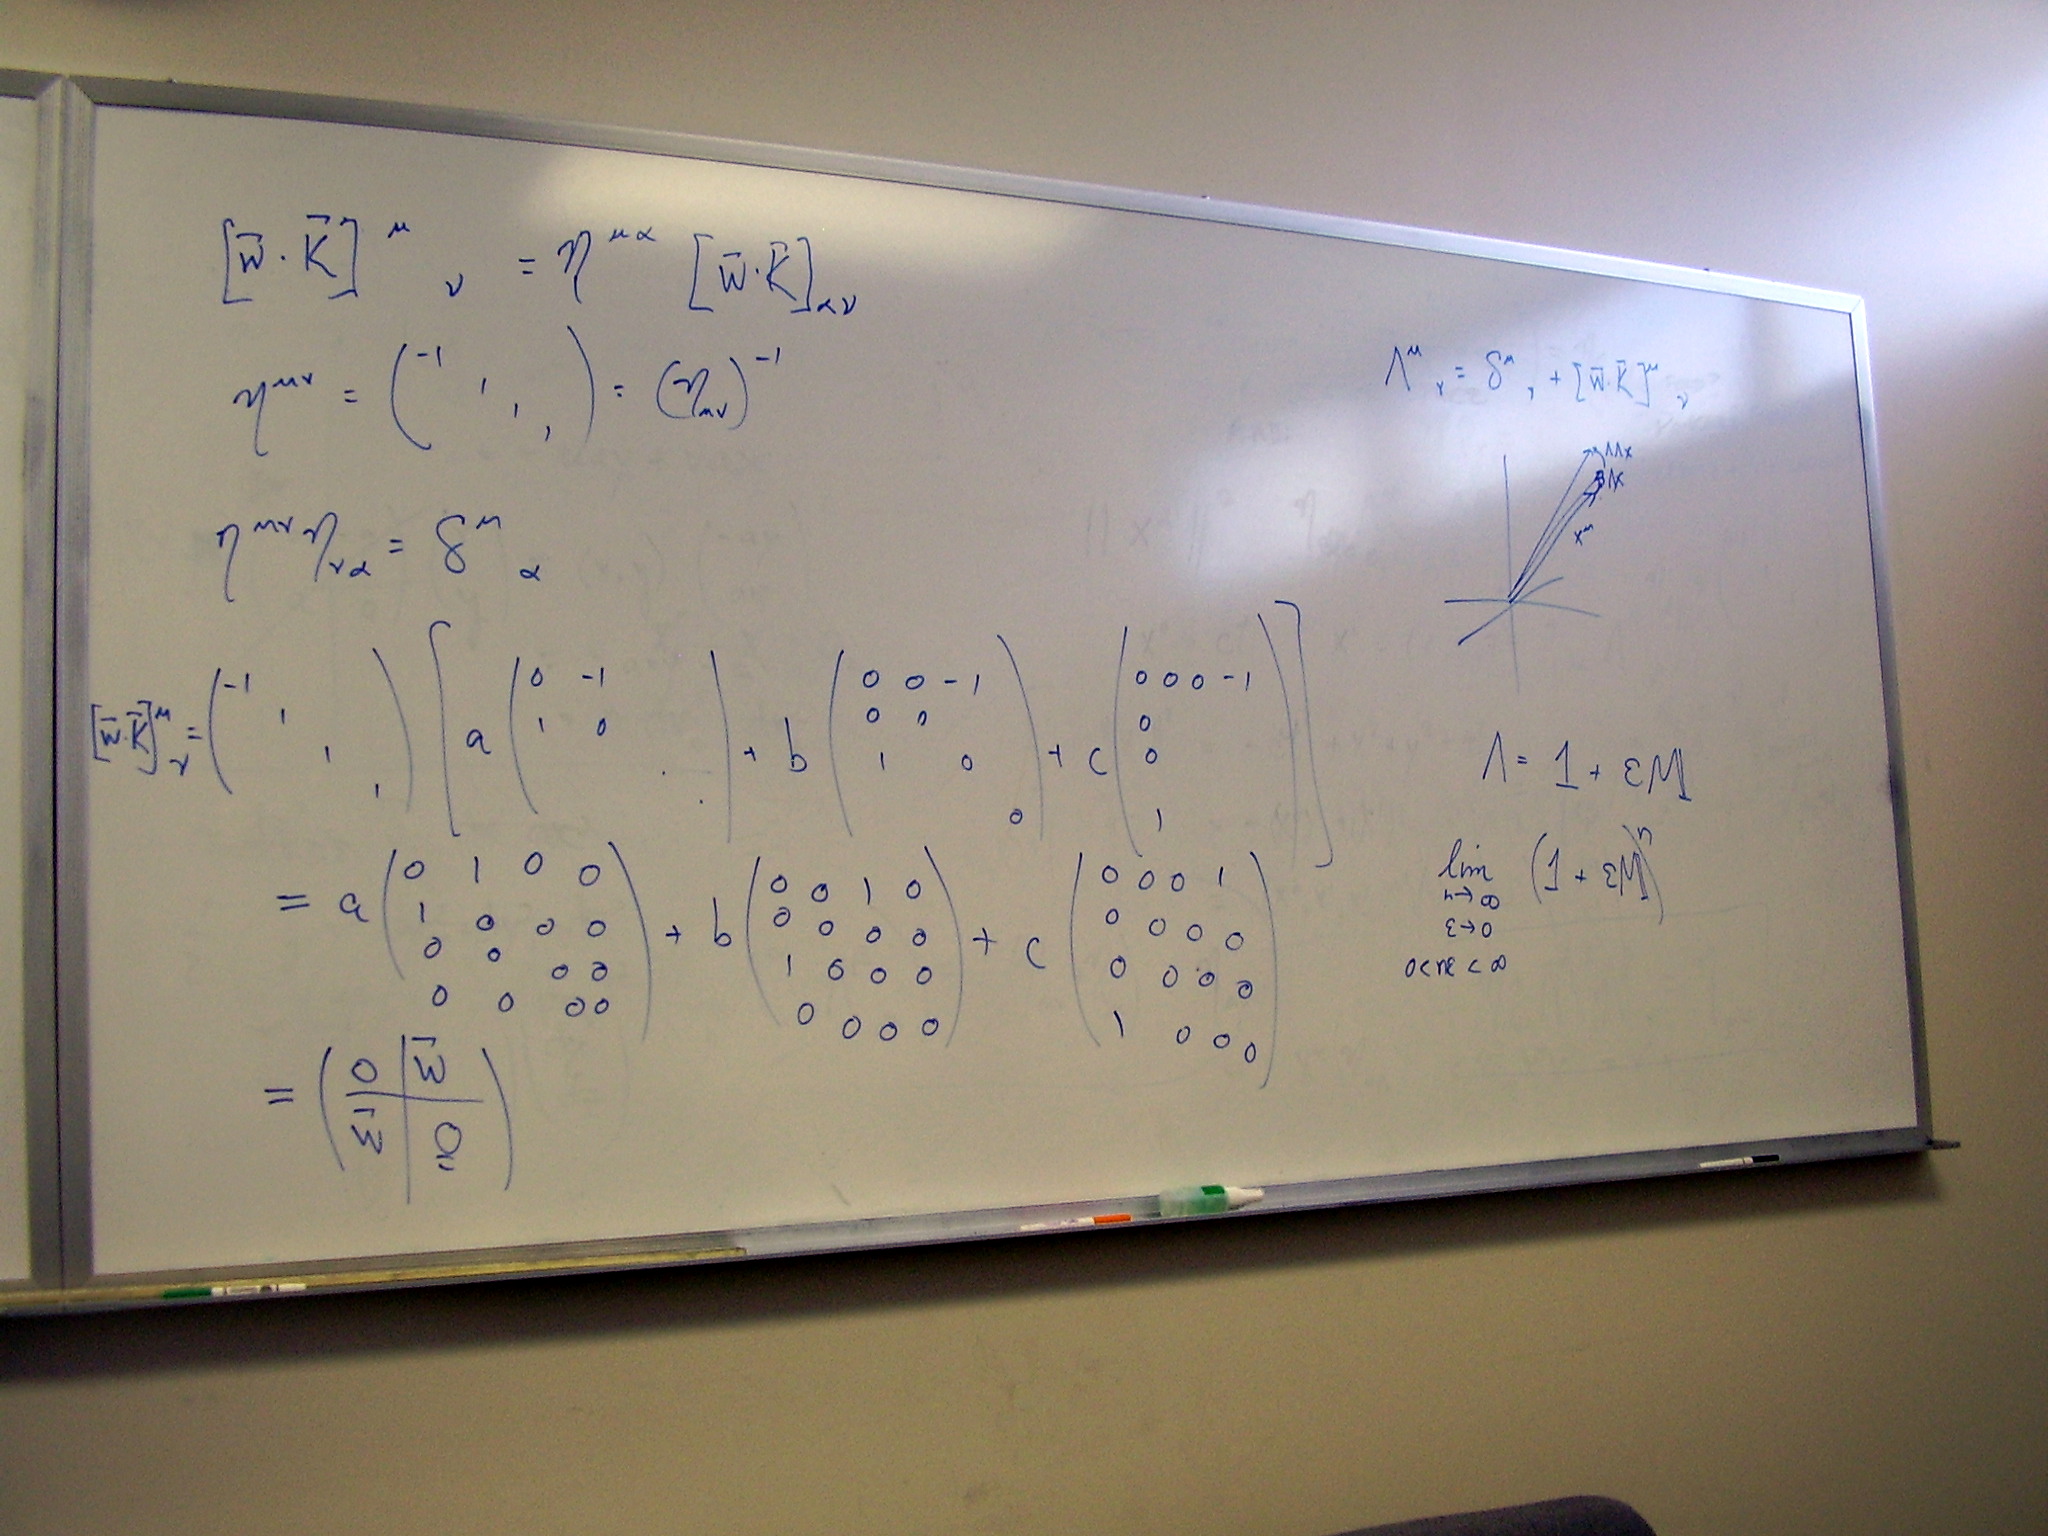 [w⃗·K⃗]^μ_ν = η^{μα} [w⃗·K⃗]_{αν}
η^{μν} = (-1 1 1 1) = (η_{μν})^{-1}
η^{μν} η_{να} = δ^μ_α
[w⃗·K⃗]^μ_ν = (-1 1 1 1) [ a (0 -1 ; 1 0 ; . ; .) + b (0 0 -1 ; 0 0 ; 1 0 ; 0) + c (0 0 0 -1 ; 0 ; 0 ; 1) ]
= a (0 1 0 0 ; 1 0 0 0 ; 0 0 0 0 ; 0 0 0 0) + b (0 0 1 0 ; 0 0 0 0 ; 1 0 0 0 ; 0 0 0 0) + c (0 0 0 1 ; 0 0 0 0 ; 0 0 0 0 ; 1 0 0 0)
= (0 | w⃗ ; w⃗ | 0)
Λ^μ_ν = δ^μ_ν + [w⃗·K⃗]^μ_ν
ΛΛx
Λx
x^μ
Λ = 1 + εM
lim (1 + εM)^n
n→∞
ε→0
0<nε<∞